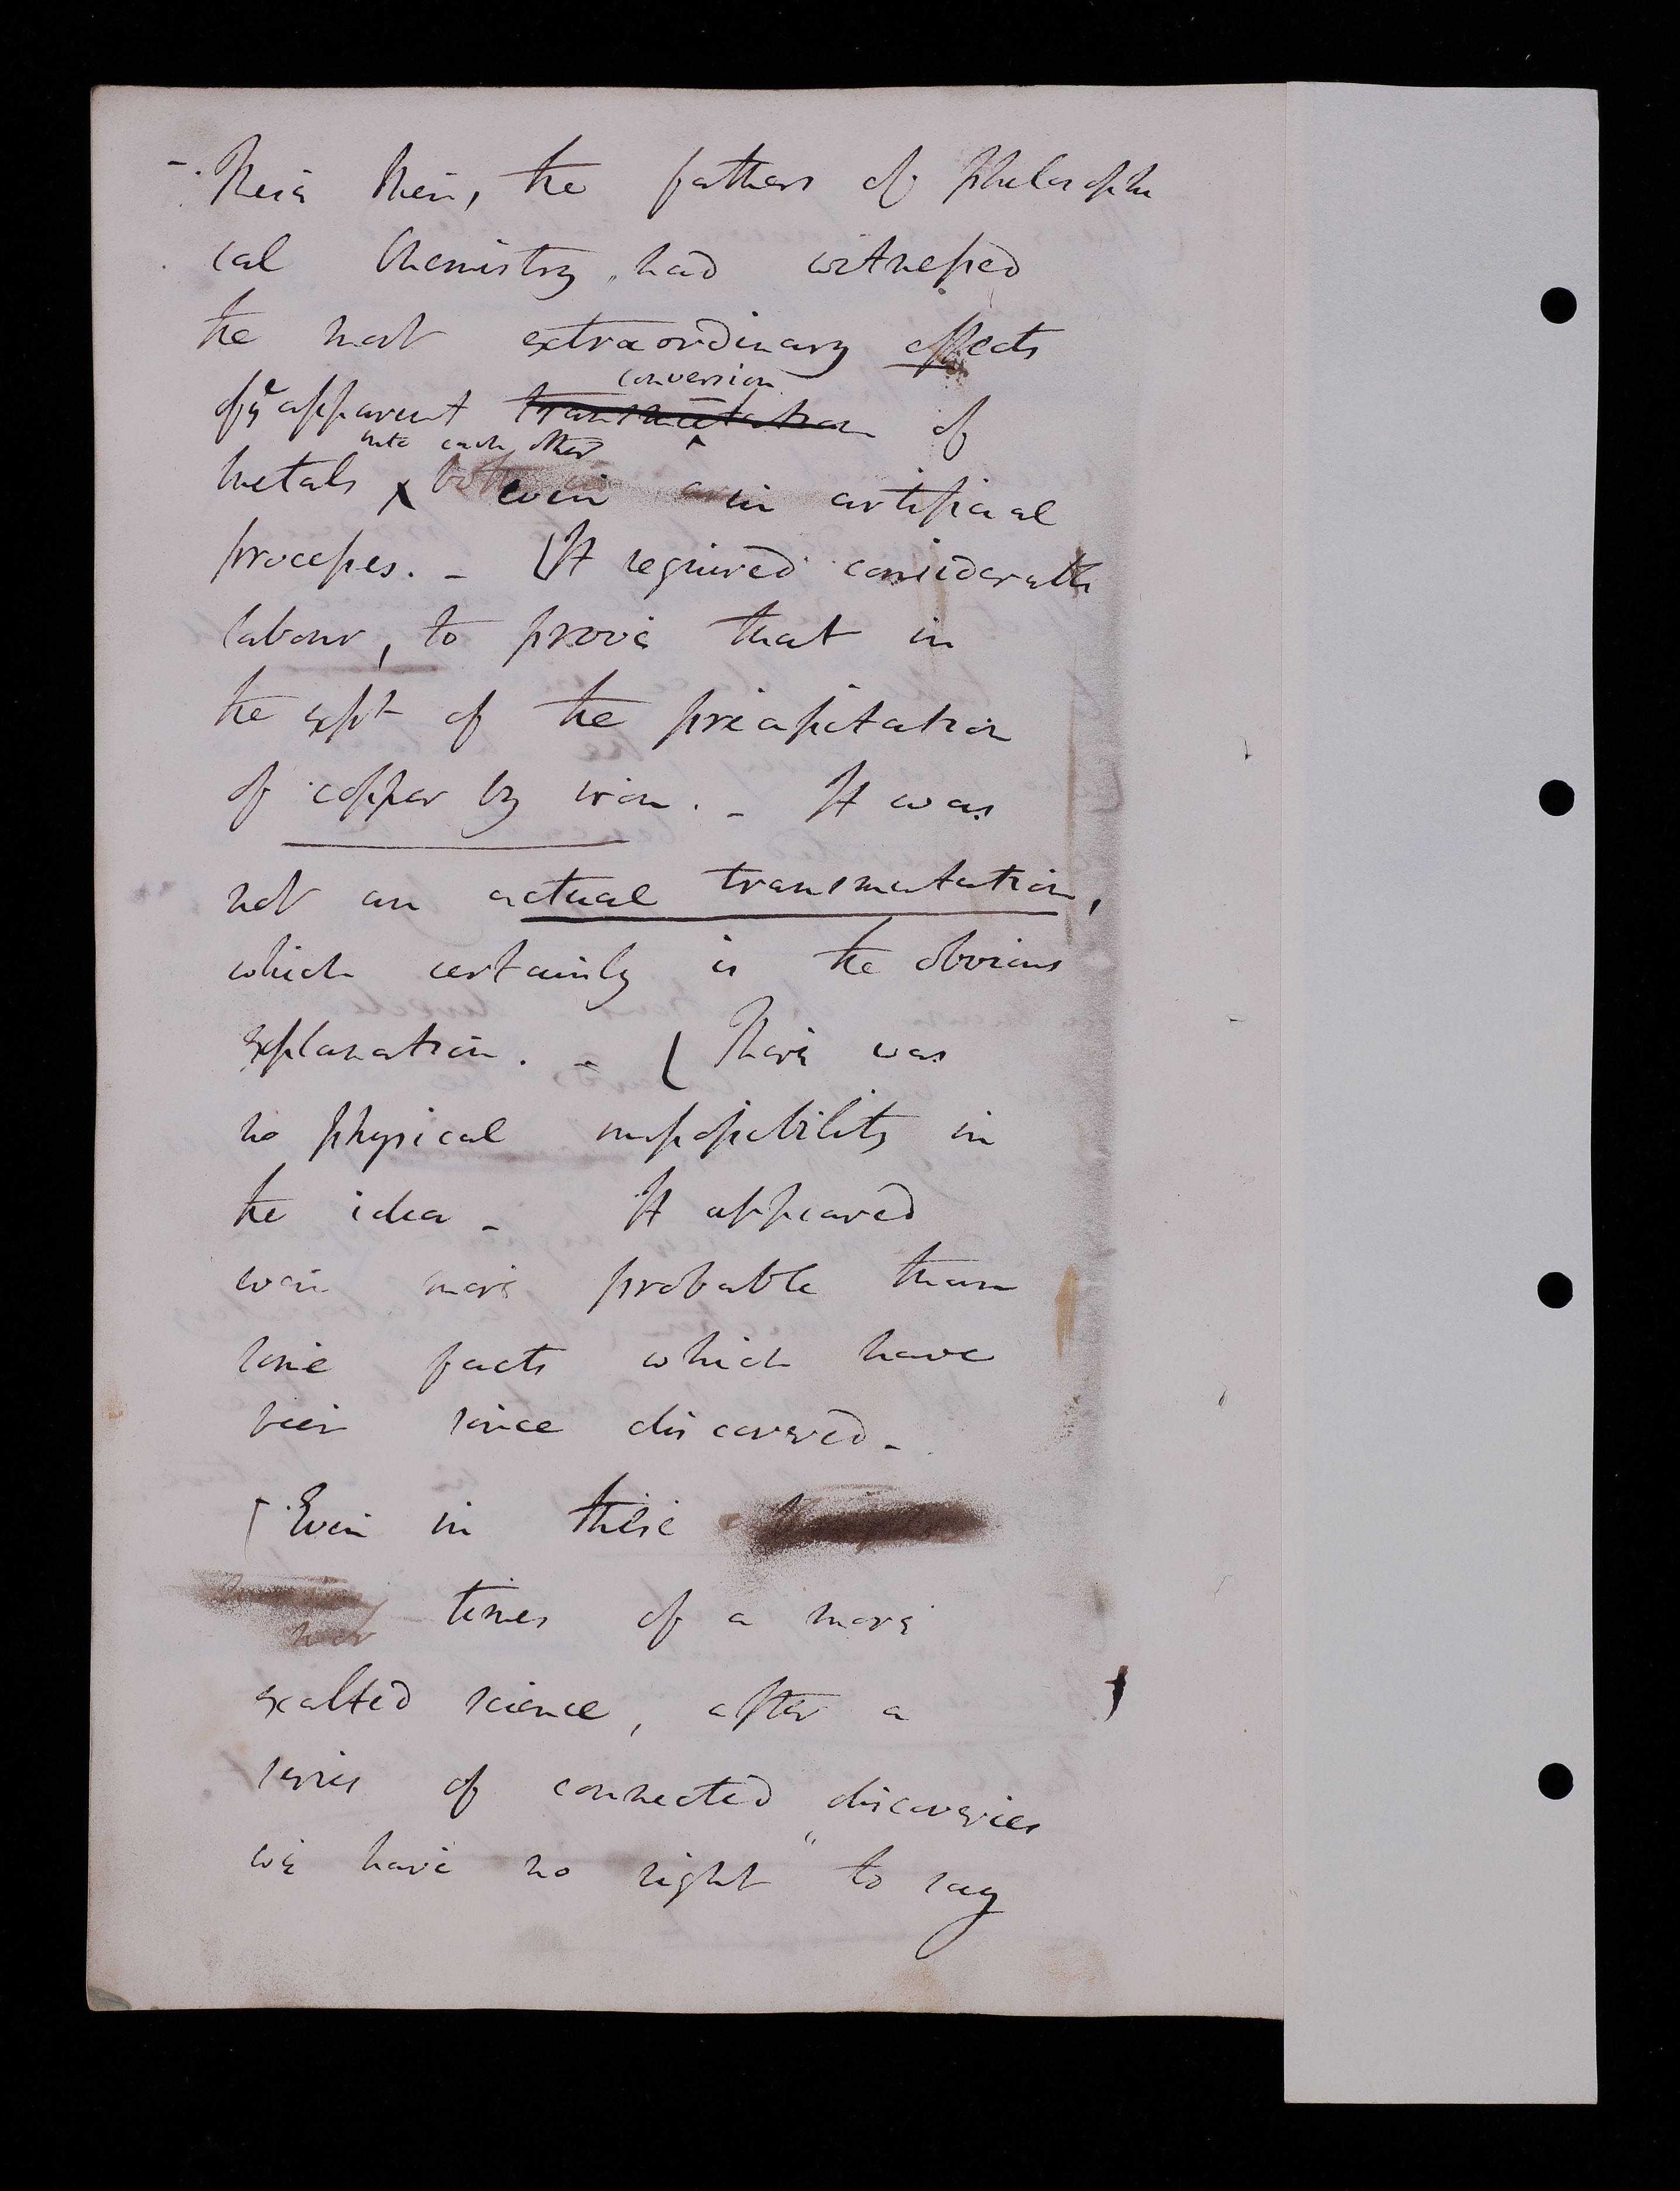 - These Men, the fathers of philosophi
cal Chemistry had witnessed
the most extraordinary effects
of ye apparent transmutation conversion of
metals into each other even in artificial
processes. - It required considerable
labour, to prove that in
the expt of the precipitation
of copper by iron. - It was
not an actual transmutation,
which certainly is the obvious
explanation. - There was
no physical impossibility in
the idea - It appeared
even more probable than
some facts which have
been since discovered -
Even in these
times of a more
exalted science, after a
series of connected discoveries
we have no right to say